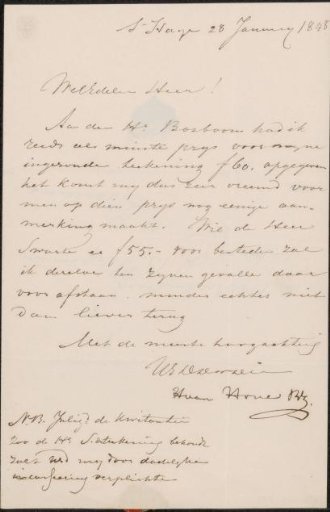 s'Hage 28 January 1848
WelEdele Heer!
Aan den Hr. Bosboom had ik
reeds als minste prys voor myne
ingezonde teekening f60. opgegeven
het komt my dus zeer vreemd voor
men op dien prys nog eenige aan-
merking maakt. Wil de Heer
Swarts er f55.- voor besteden zal
ik dezelve ten zynen gevalle daar
voor afstaan. minder echter niet
dan liever terug
Met de meeste hoogachting
UEd
H van Hove Bz.
NB.
zoo de Hr. S. teekening behoudt
zult UEd my door dadelyke
verplichten